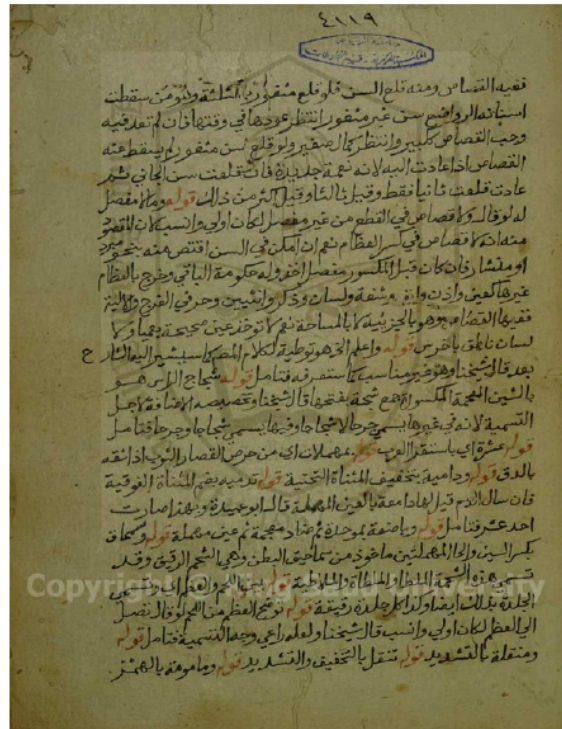 ٤١١٩
ففيه القصاص ومنه قلع السن فلو قلع مثغور بالمثلثة وبنو من سقطت
اسنانه الرواضع سن غير مثغور انتظر عودها في وقتها فان لم تعد فيه
وجب القصاص كبير وانتظر كمال صغير ولو قلع سن مثغور لم يسقط عنه
القصاص اذا عادت اليه لانه نعمة جديدة فان قلعت سن الجاني ثم
عادت قلعت ثانيا فقط وقيل ثالثا وقيل اكثر من ذلك قوله وما لا مفصل
له لو قال ولا قصاص في القطع من غير مفصل لكان اولى وانسب لان المقصود
منه انه لا قصاص في كسر العظام نعم ان امكن في السن اقتص منه بنحو مبرد
او منشار فان كان قبل المكسور مفصل اخذ وله حكومة الباقي وخرج بالعظام
غيرها كعين واذن وانف وشفة ولسان وذكر وانثيين وحرفي الفرج والالية
ففيها القصاص وهو بالجزئية لا بالمساحة نعم لا توخذ عين صحيحة بعميا ولا
لسان ناطق باخرس قوله واعلم الخ هو توطية لكلام المص كما سيشير اليه الشارح
بعد قال شيخنا وهو غير مناسب كما ستعرفه فتامل قوله شجاج الراس هو
بالشين المعجمة المكسورة جمع شجة بفتحها قال شيخنا وتخصيصه الاضافة لاجل
التسمية لانه في غيرها يسمى جرحا لا شجاجا وفيها يسمى شجاجا وجرحا فتامل
قوله عشرة اي باستقرا العرب قوله بمهملات اي من حرص القصار الثوب اذا شقه
بالدق قوله ودامية بتخفيف المثناة التحتية قوله تدميه بضم المثناة الفوقية
فان سال الدم قيل لها دامعة بالعين المهملة قاله ابو عبيدة وبهذا صارت
احد عشر فتامل قوله وباضعة بموحدة ثم ضاد معجمة ثم عين مهملة قوله وسمحاق
بكسر السين والحا المهملتين ماخوذ من سماحيق البطن وهي الشحم الرقيق وقد
تسمى هذه الشجة الملطا والملطاة واللاطية قوله بين اللحم والعظم اي وتسمى
الجلدة بذلك ايضا وكذا كل جلدة رقيقة قوله توضح العظم من اللحم لو قال تصل
الى العظم لكان اولى وانسب قال شيخنا ولعله راعى وجه التسمية فتامل قوله
ومنقلة بالتشديد قوله تنقل بالتخفيف والتشديد قوله ومامومة بالهمز
Copyright © King Saud University